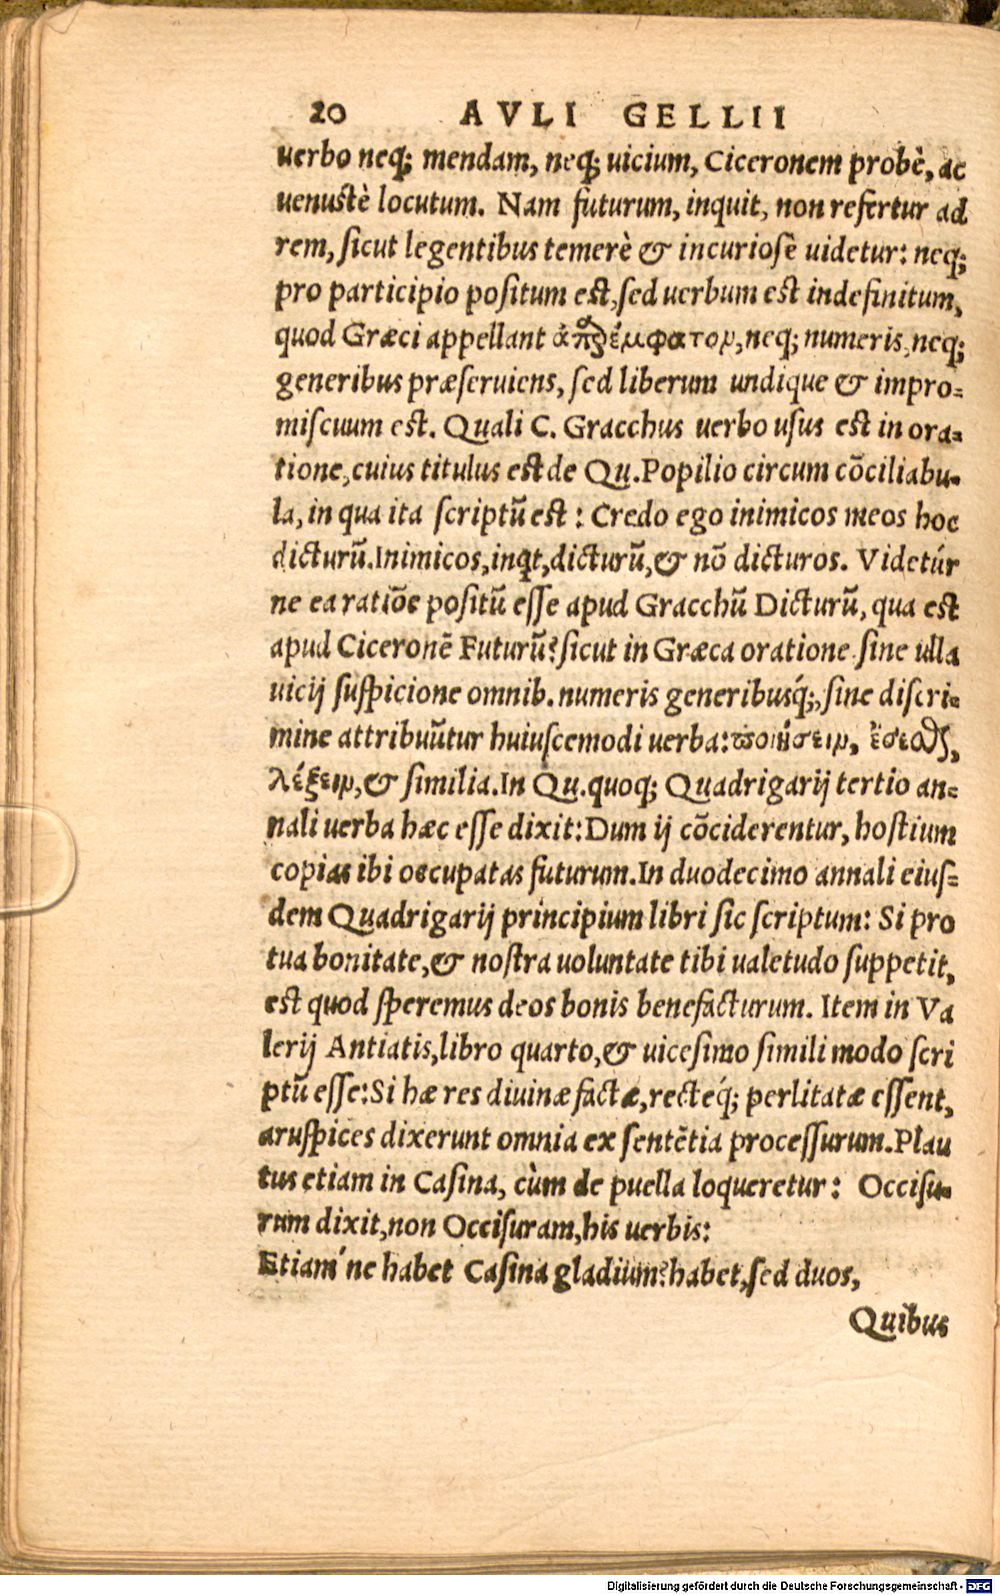 20 AVLI GELLII
uerbo neq; mendam, neq; uicium, Ciceronem probè, ac
uenustè locutum. Nam futurum, inquit, non refertur ad
rem, sicut legentibus temerè & incuriosè uidetur: neq;
pro participio positum est, sed uerbum est indefinitum,
quod Græci appellant ἀπαρέμφατον, neq; numeris, neq;
generibus præseruiens, sed liberum undique & impro-
miscuum est. Quali C. Gracchus uerbo usus est in ora-
tione, cuius titulus est de Qu. Popilio circum cõciliabu-
la, in qua ita scriptũ est: Credo ego inimicos meos hoc
dicturũ. Inimicos, inqt, dicturũ, & nõ dicturos. Videtúr
ne ea ratiõe positũ esse apud Gracchũ Dicturũ, qua est
apud Ciceronẽ Futurũ? sicut in Græca oratione sine ulla
uicij suspicione omnib. numeris generibusq́;, sine discri-
mine attribuũtur huiuscemodi uerba: ποιήσειν, ἔσεσθαι,
λέξειν, & similia. In Qu. quoq; Quadrigarij tertio an-
nali uerba hæc esse dixit: Dum ij cõciderentur, hostium
copias ibi occupatas futurum. In duodecimo annali eius-
dem Quadrigarij principium libri sic scriptum: Si pro
tua bonitate, & nostra uoluntate tibi ualetudo suppetit,
est quod speremus deos bonis benefacturum. Item in Va
lerij Antiatis, libro quarto, & uicesimo simili modo scri
ptũ esse: Si hæ res diuinæ factæ, recteq́; perlitatæ essent,
aruspices dixerunt omnia ex sentẽtia processurum. Plau
tus etiam in Casina, cùm de puella loqueretur: Occisu-
rum dixit, non Occisuram, his uerbis:
Etiam´ne habet Casina gladium? habet, sed duos,
Quibus
Digitalisierung gefördert durch die Deutsche Forschungsgemeinschaft - DFG